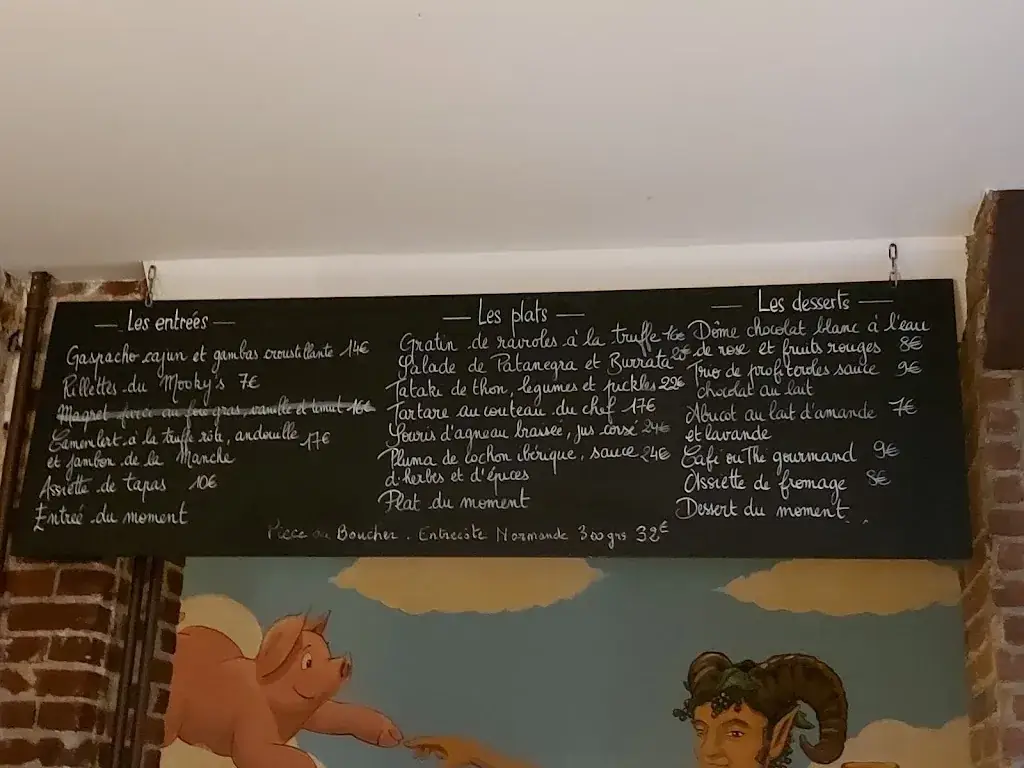 Les entrées
Gaspacho cajun et gambas croustillante 14€
Rillettes du Mooky's 7€
Magret farci au foie gras, vanille et 16€
Camembert à la truffe rôti, andouille 17€
et jambon de la Manche
Assiette de tapas 10€
Entrée du moment
Les plats
Gratin de ravioles à la truffe 16€
Salade de Patanegra et Burrata
Tataki de thon, legumes et pickles 22€
Tartare au couteau du chef 17€
Souris d'agneau braisée, jus corsé 24€
Pluma de cochon ibérique, sauce 24€
d'herbes et d'épices
Plat du moment
Les desserts
Dôme chocolat blanc à l'eau
de rose et fruits rouges 8€
Trio de profiteroles sauce 9€
chocolat au lait
Abricot au lait d'amande 7€
et lavande
Café ou Thé gourmand 9€
Assiette de fromage 8€
Dessert du moment
Pièce du Boucher . Entrecôte Normande 300grs 32€